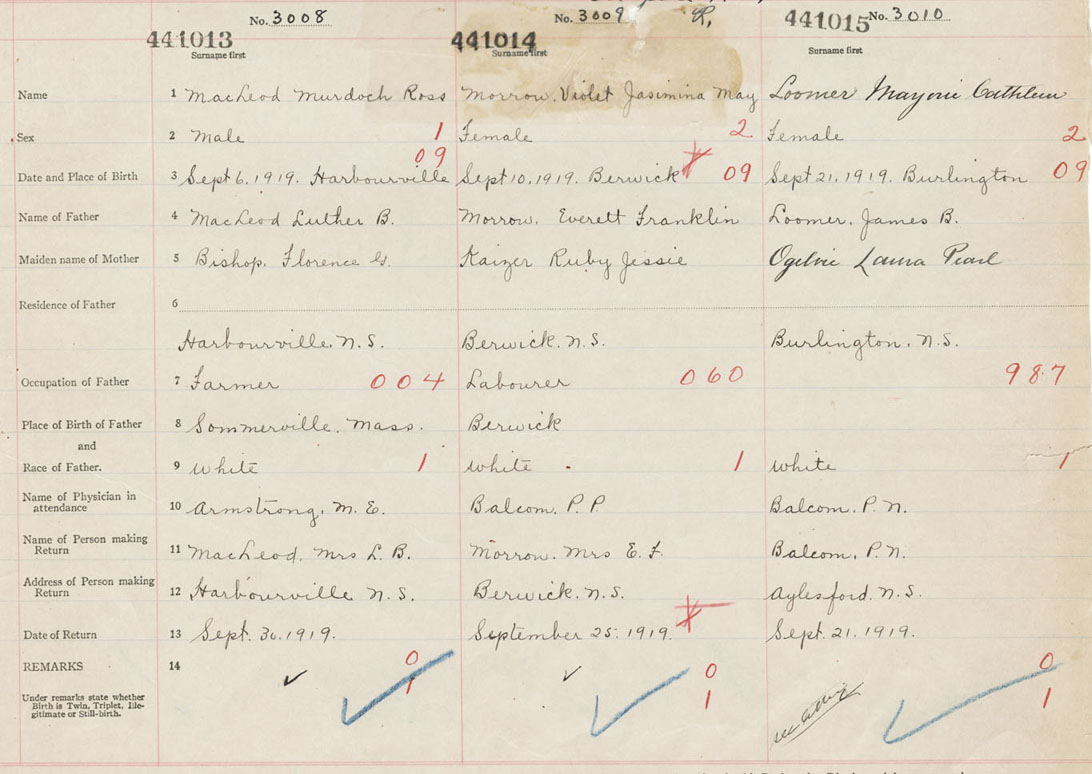 No. 3008 No. 3009 R, No. 3010
441013 441014 441015
Surname first Surname first Surname first
Name 1 MacLeod Murdoch Ross Morrow, Violet Jasimina May Loomer Marjorie Cathleen
Sex 2 Male 1 Female 2 Female 2
09
Date and Place of Birth 3 Sept 6, 1919. Harbourville Sept 10, 1919. Berwick 09 Sept 21, 1919. Burlington 09
Name of Father 4 MacLeod Luther B. Morrow, Everett Franklin Loomer, James B.
Maiden name of Mother 5 Bishop, Florence G. Kaizer Ruby Jessie Ogilvie Laura Pearl
Residence of Father 6
Harbourville, N.S. Berwick, N.S. Burlington, N.S.
Occupation of Father 7 Farmer 004 Labourer 060 987
Place of Birth of Father 8 Sommerville, Mass. Berwick
and
Race of Father. 9 White 1 White 1 White 1
Name of Physician in
attendance 10 Armstrong, M. E. Balcom, P. P. Balcom, P. N.
Name of Person making
Return 11 MacLeod, Mrs L. B. Morrow, Mrs E. F. Balcom, P. N.
Address of Person making
Return 12 Harbourville N.S. Berwick, N.S. Aylesford, N.S.
Date of Return 13 Sept. 30, 1919. September 25, 1919. Sept. 21, 1919.
REMARKS 14 0 0 0
1 1 1
Under remarks state whether
Birth is Twin, Triplet, Ille-
gitimate or Still-birth.